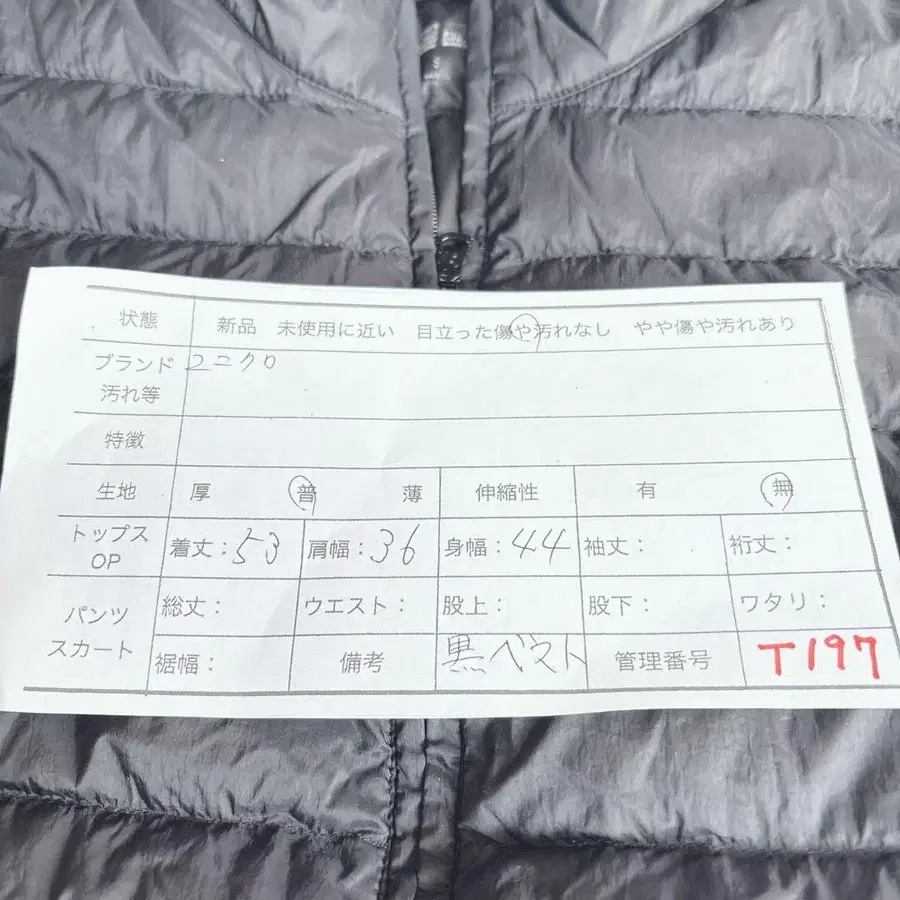 S
状態 新品 未使用に近い 目立った傷や汚れなし やや傷や汚れあり
ブランド ユニクロ
汚れ等
特徴
生地 厚 普 薄 伸縮性 有 無
トップス
OP 着丈:53 肩幅:36 身幅:44 袖丈: 裄丈:
パンツ
スカート
総丈: ウエスト: 股上: 股下: ワタリ:
裾幅: 備考 黒ベスト 管理番号 T197